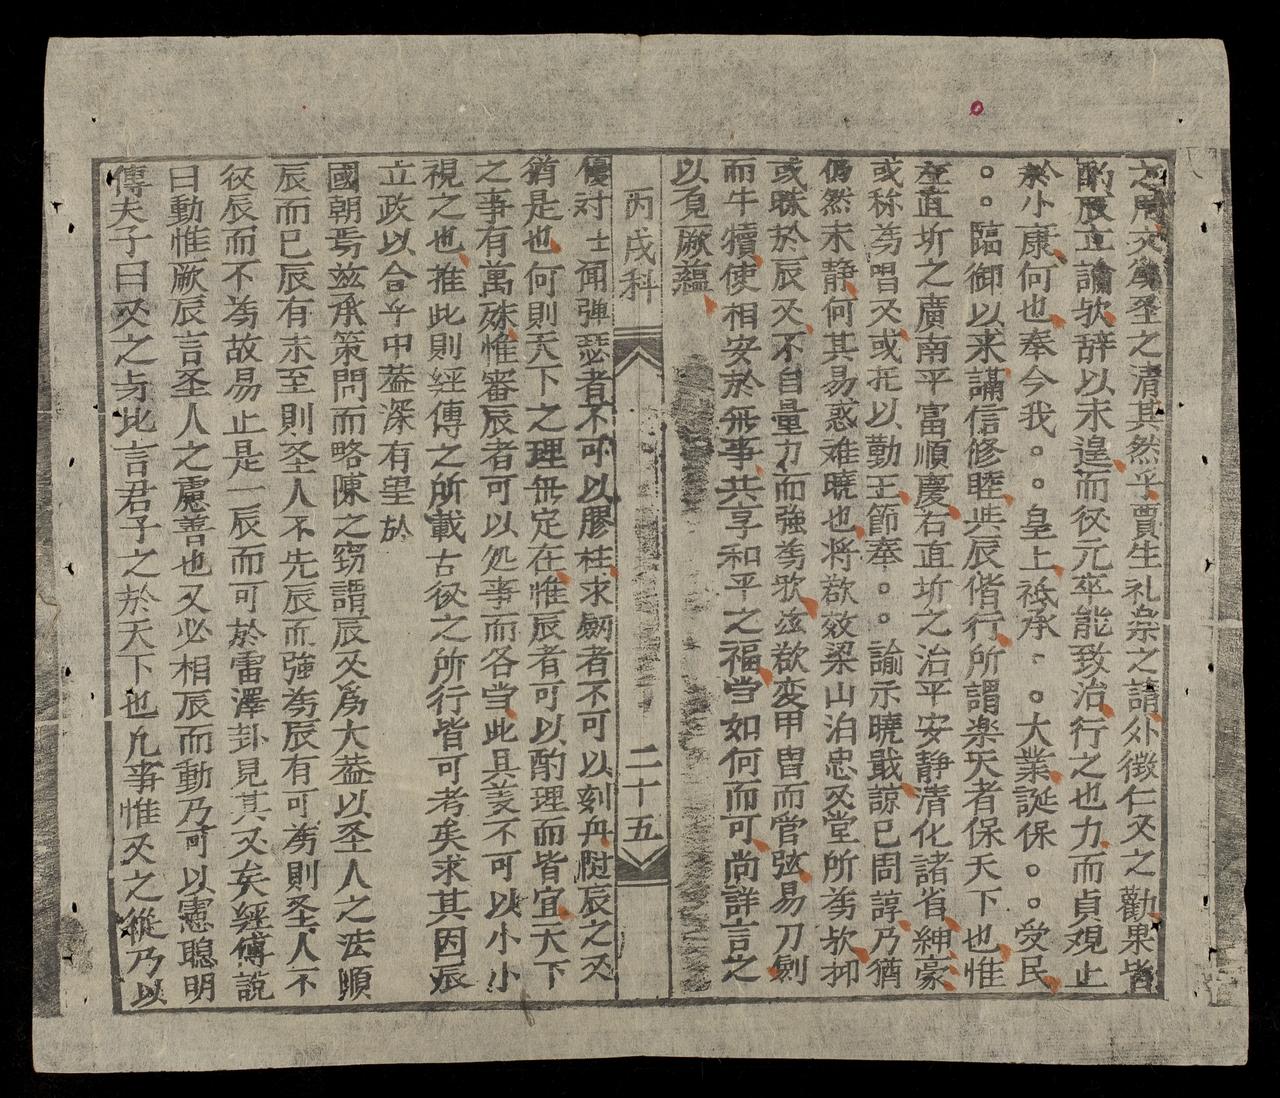 之用文爲至之清其然乎賈生礼㐮之請外徴仁义之勸果皆
酌辰立論欤辞以未遑而役元卒能致治行之也力而貞观止
於小康何也奉今我。。皇上祗承。。大業誕保。。受民
。。臨御以来講信修睦与辰偕行所謂楽天者保天下也惟
左直圻之廣南平富順慶右直圻之治平安静清化諸省紳豪
或称為唱义或托以勤王節奉。。諭示曉戢諒已周諄乃猶
仍然未静何其易惑难曉也将欲效梁山泊忠义堂所為欤抑
或昧於辰义不自量力而強為欤兹欲变甲冑而管弦易刀劍
而牛犢使相安於無事共享和平之福当如何而可尚詳言之
以覔厥蘊
丙戌科 二十五
優対 士聞彈瑟者不可以膠柱求劍者不可以刻舟 辰之义
猶是也何則天下之理無定在惟辰者可以酌理而皆宜天下
之事有萬殊惟審辰者可以処事而各当此其義不可以小小
視之也推此則經傳之所載古役之所行皆可考矣求其因辰
立政以合乎中葢深有望 於
國朝焉兹承策問而略陳之窃謂辰义爲大葢以圣人之法順
辰而已辰有未至則圣人不先辰而強為辰有可為則圣人不
役辰而不為故易止是一辰而可於雷澤卦見其义矣經傳説
曰動惟厥辰言圣人之慮善也又必相辰而動乃可以憲聰明
傳夫子曰义之与比言君子之於天下也凢事惟义之從乃以